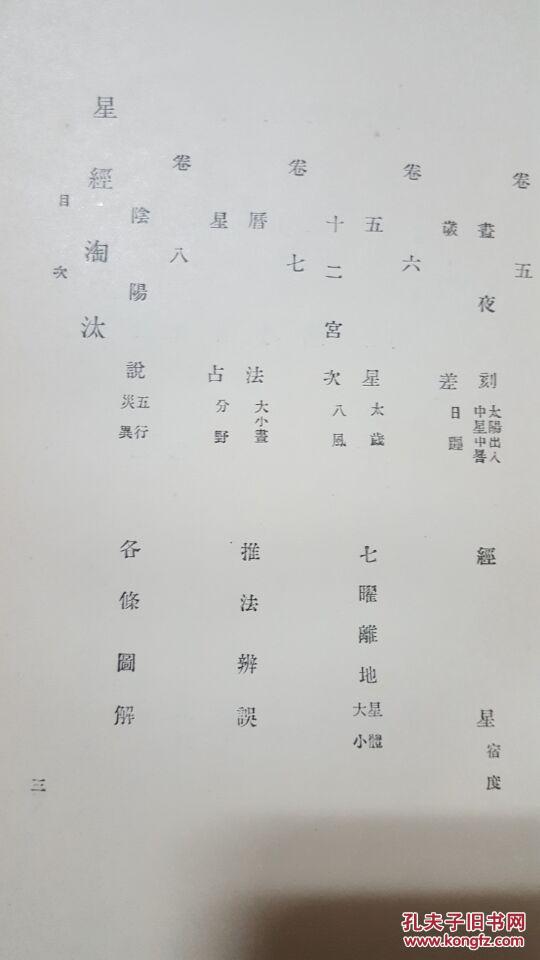 卷五
晝夜刻 太陽出入 中星中晷
經星 宿度
歲差 日躔
卷六
五星 太歲
七曜離地 星體大小
十二宮次 八風
卷七
曆法 大小晝
推法辨誤
星占 分野
卷八
陰陽說 五行 災異
各條圖解
星經淘汰
目次
三
孔夫子旧书网
www.kongfz.com